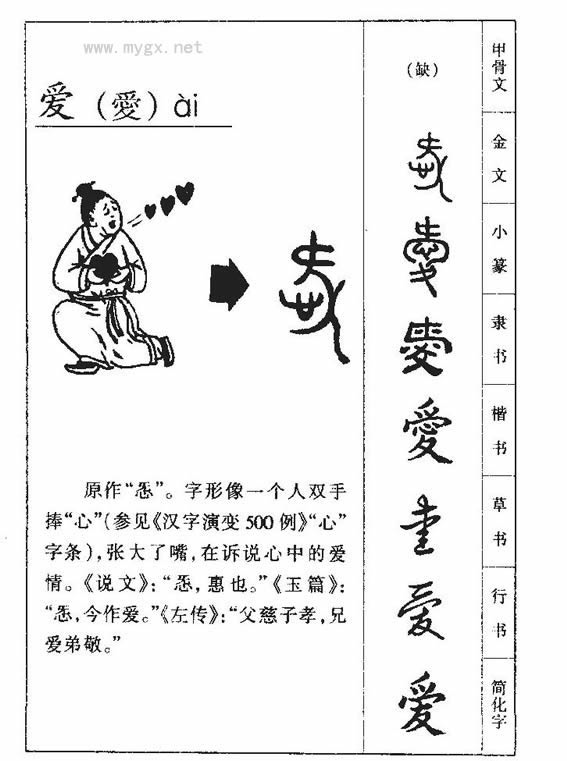 www.mygx.net
爱（愛）ài
原作“㤅”。字形像一个人双手
捧“心”（参见《汉字演变500例》“心”
字条），张大了嘴，在诉说心中的爱
情。《说文》：“㤅，惠也。”《玉篇》：
“㤅，今作爱。”《左传》：“父慈子孝，兄
爱弟敬。”
（缺）
甲骨文
金文
小篆
隶书
愛
楷书
草书
行书
爱
简化字